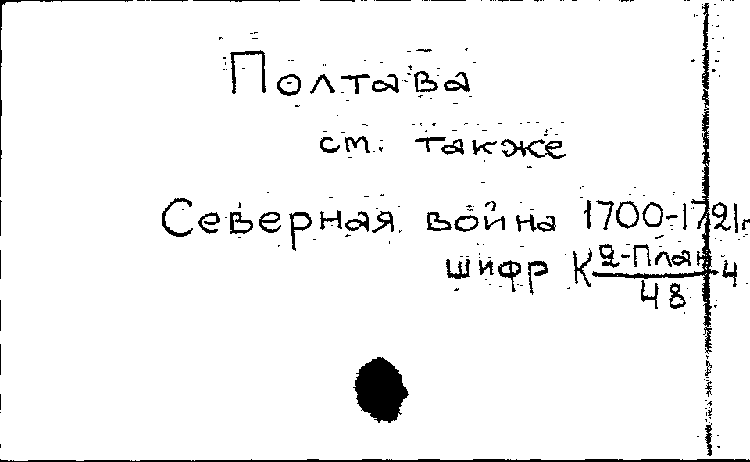 Полтава
см. также
Северная война 1700-1721г
шифр К 2-План/48 -4